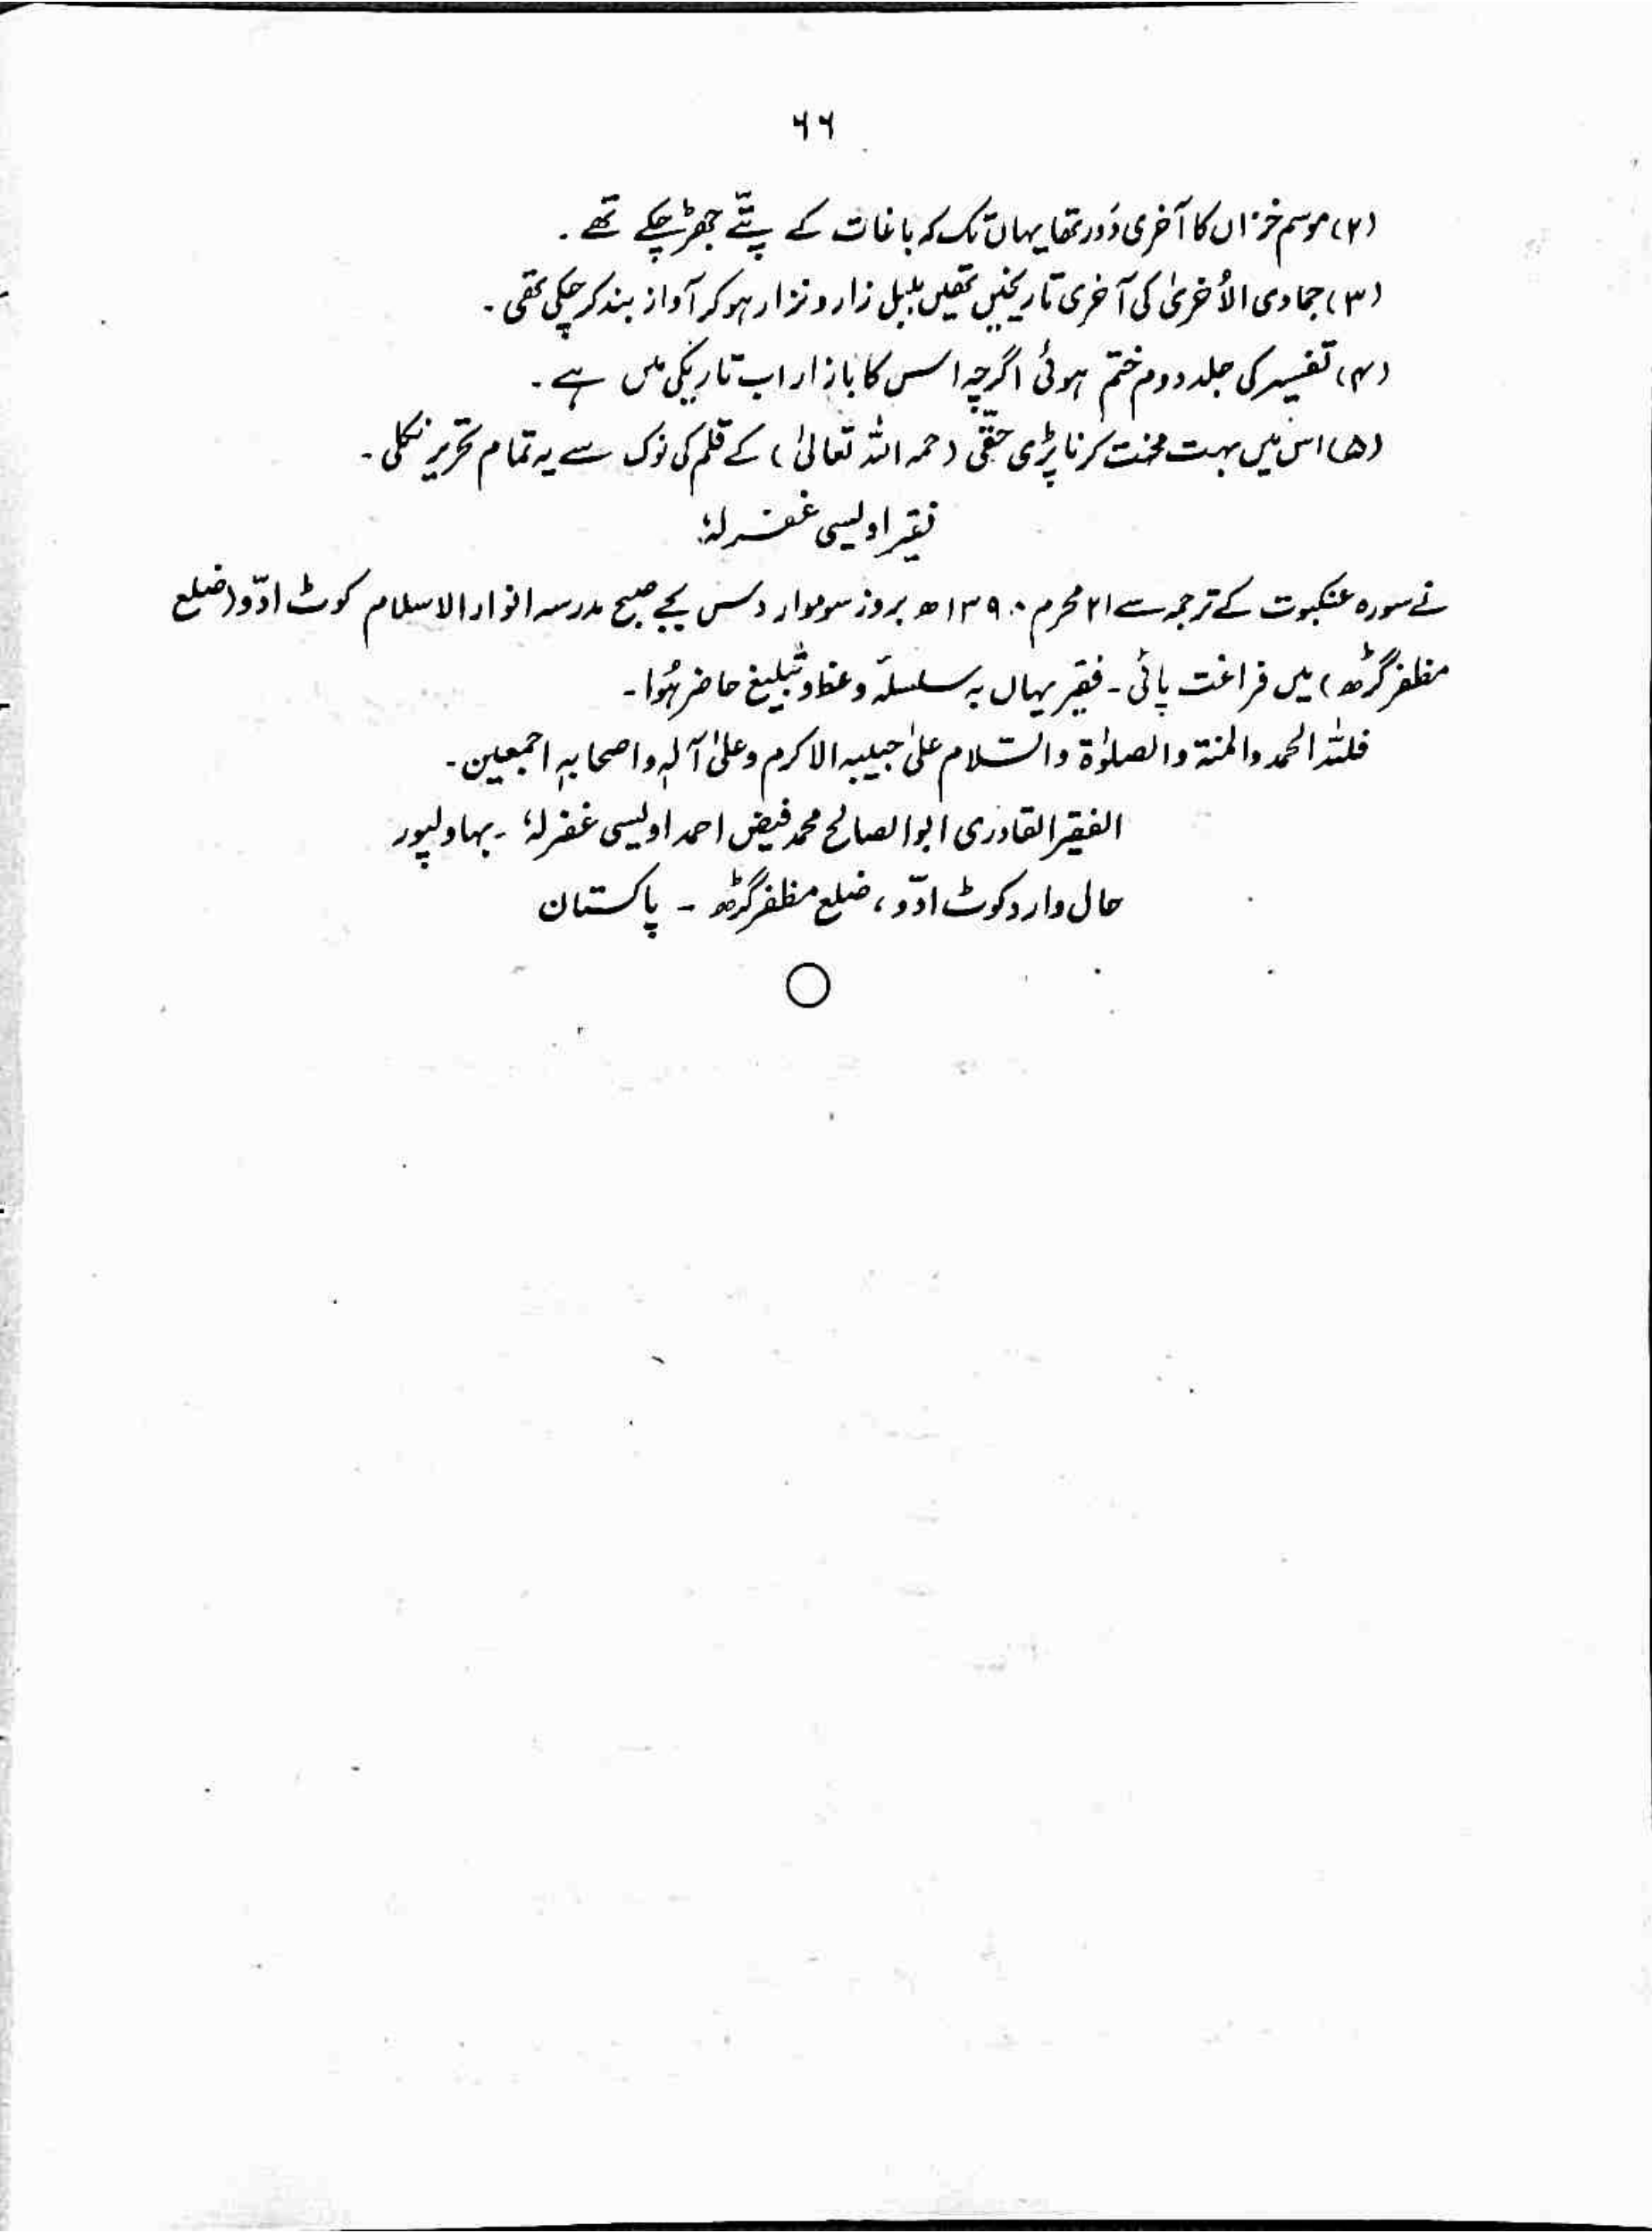 ۶۶
(۲) موسم خزاں کا آخری دَور تھا یہاں تک کہ باغات کے پتّے جھڑ چکے تھے۔
(۳) جمادی الاُخریٰ کی آخری تاریخیں تھیں بلبل زار و نزار ہو کر آواز بند کر چکی تھی۔
(۴) تفسیر کی جلد دوم ختم ہوئی اگرچہ اس کا بازار اب تاریکی میں ہے۔
(۵) اس میں بہت محنت کرنا پڑی حقّی (رحمہ اللہ تعالیٰ) کے قلم کی نوک سے یہ تمام تحریر نکلی۔
فقیر اویسی غفرلہٗ
نے سورہ عنکبوت کے ترجمہ سے ۲۱ محرم ۱۳۹۰ھ بروز سوموار دس بجے صبح مدرسہ انوار الاسلام کوٹ ادّو (ضلع
مظفر گڑھ) میں فراغت پائی۔ فقیر یہاں بہ سلسلۂ وعظ و تبلیغ حاضر ہُوا۔
فللّٰہ الحمد والمنۃ والصلوٰۃ والسّلام علیٰ حبیبہ الاکرم وعلیٰ آلہٖ واصحابہٖ اجمعین۔
الفقیر القادری ابوالصالح محمد فیض احمد اویسی غفرلہٗ ۔ بہاولپور
حال وارد کوٹ ادّو، ضلع مظفر گڑھ ۔ پاکستان